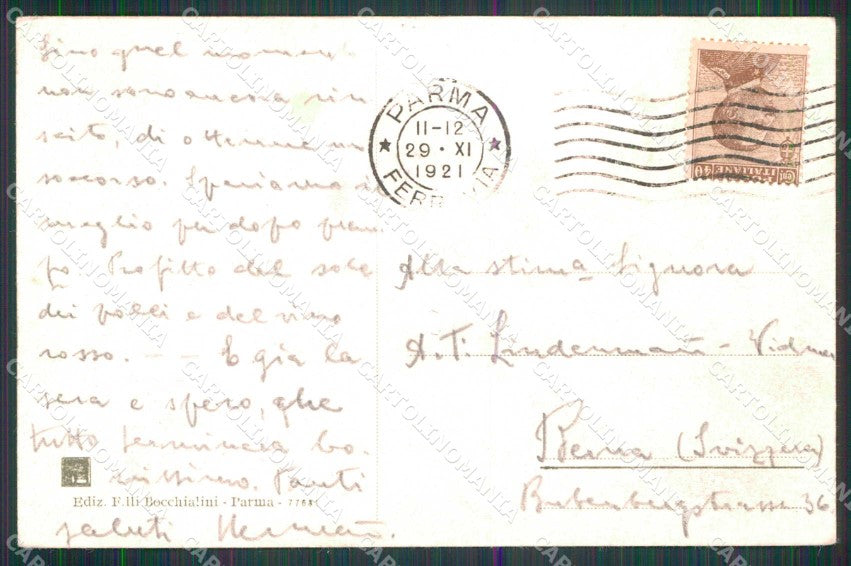 Sino quel momento
non sono ancora riu
scito, di ottenere un
soccorso. Speriamo il
meglio per dopo pran
zo Profitto del sole
dei polli e del vino
rosso. — — E già la
sera e spero, che
tutto terminerà be
nissimo. Tanti
saluti Hermann.
Ediz. F.lli Bocchialini - Parma -
PARMA
11-12
29 · XI
1921
FERROVIA
ITALIANE
40
Alla stima Signora
A. T. Lindermann - Vidmer
Berna (Svizzera)
Bubenbergstrasse 36
CARTOLINOMANIA